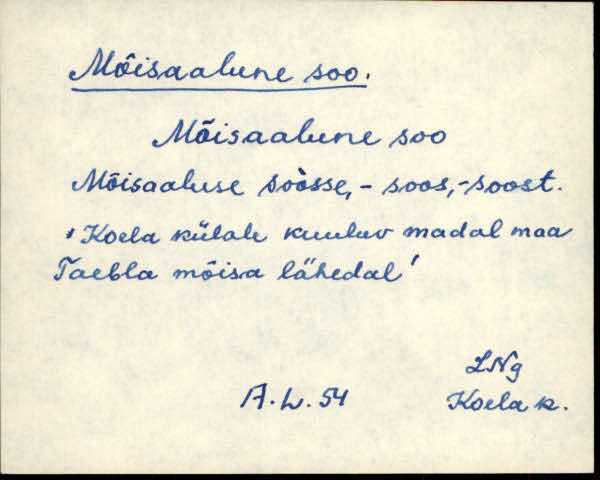 Mõisaalune soo.
Mõisaalune soo
Mõisaaluse soòsse, - soos, -soost.
' Koela külale kuuluv madal maa
Taebla mõisa lähedal '
LNg
A. L. 54
Koela k.